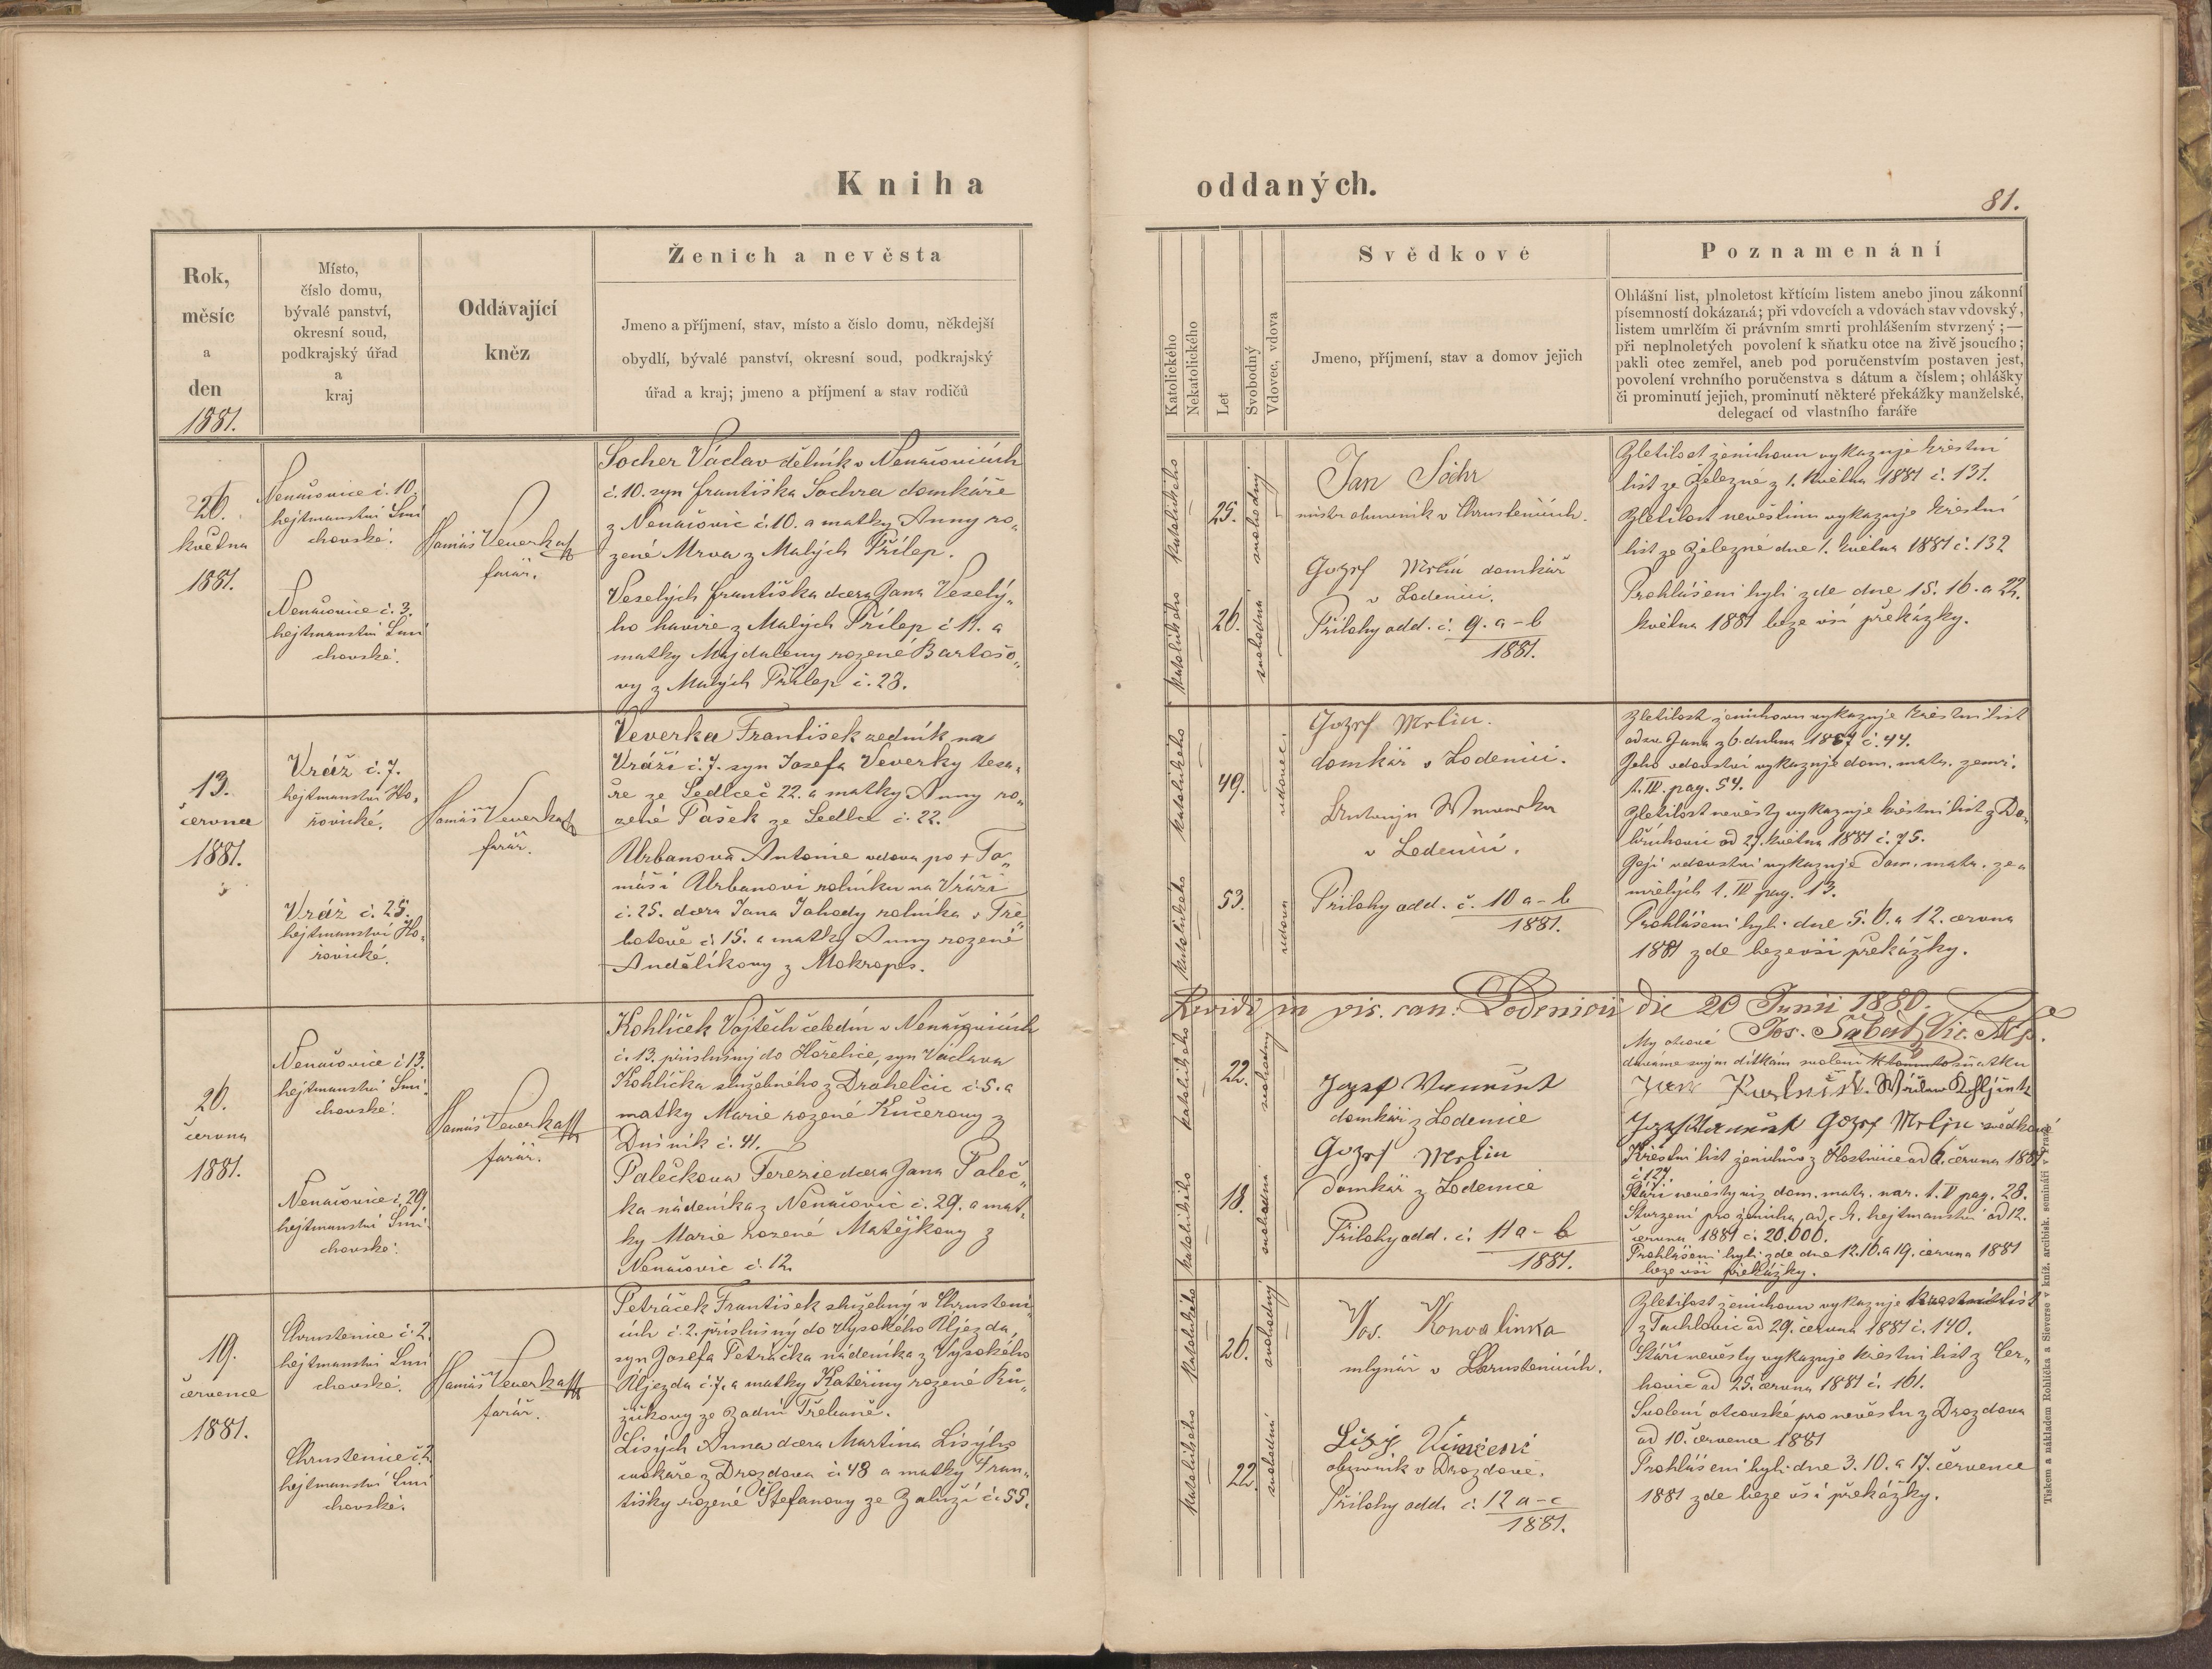 Kniha
Rok,
měsíc
a
den
1881.
Místo,
číslo domu,
bývalé panství,
okresní soud,
podkrajský úřad
a
kraj
Oddávající
kněz
Ženich a nevěsta
Jmeno a příjmení, stav, místo a číslo domu, někdejší
obydlí, bývalé panství, okresní soud, podkrajský
úřad a kraj; jmeno a příjmení a stav rodičů
26.
května
1881.
Nenačovice č. 10.
hejtmanství Smí
chovské.
Nenačovice č. 3.
hejtmanství Smí
chovské.
Tomáš Veverka
farář.
Socher Václav dělník v Nenačovicích
č. 10. syn Františka Sochra domkáře
z Nenačovic č. 10. a matky Anny ro„
zené Mrva z Malých Přílep.
Veselých Františka dcera Jana Veselý„
ho havíře z Malých Přílep č 11. a
matky Majdaleny rozené Bartošo„
vy z Malých Přílep č. 23.
13.
června
1881.
Vráž č. 7.
hejtmanství Ho„
řovické.
Vráž č. 25.
hejtmanství Ho„
řovické.
Tomáš Veverka
farář.
Veverka František zedník na
Vráži č. 7. syn Josefa Veverky tesa„
ře ze Sedlce č 22. a matky Anny ro„
zené Pašek ze Sedlce č. 22.
Urbanová Antonie vdova po + To„
máši Urbanovi rolníku na Vráži
č. 25. dcera Jana Jahody rolníka v Tře„
botově č. 15. a matky Anny rozené
Andělíkovy z Mokrops.
26.
června
1881.
Nenačovice č 13.
hejtmanství Smí
chovské.
Nenačovice č. 29.
hejtmanství Smí
chovské.
Tomáš Veverka
farář.
Kohlíček Vojtěch čeledín v Nenačovicích
č. 13. příslušný do Hořelice, syn Václava
Kohlíčka služebného z Drahelčic č. 5. a
matky Marie rozené Kučerovy z
Dušník č. 41.
Palečkova Terezie dcera Jana Paleč„
ka nádeníka z Nenačovic č. 29. a mat„
ky Marie rozené Matějkovy z
Nenačovic č. 12.
19.
července
1881.
Chrustenice č. 2.
hejtmanství Smí
chovské.
Chrustenice č. 2
hejtmanství Smí
chovské.
Tomáš Veverka
farář.
Petráček František služebný v Chrusteni„
cích č. 2. příslušný do Vysokého Újezda
syn Josefa Petráčka nádeníka z Vysokého
Újezda č. 7. a matky Kateřiny rozené Rů„
žičkovy ze Zadní Třebaně.
Lisých Anna dcera Martina Lisýho
cvokaře z Drozdova č. 48 a matky Fran„
tišky rozené Štefanovy ze Zaluží č. 55.
oddaných.
81.
Katolického
Nekatolického
Let
Svobodný
Vdovec, vdova
Svědkové
Jmeno, příjmení, stav a domov jejich
Poznamenání
Ohlášní list, plnoletost křtícím listem anebo jinou zákonní
písemností dokázaná; při vdovcích a vdovách stav vdovský,
listem umrlčím či právním smrti prohlášením stvrzený; —
při neplnoletých povolení k sňatku otce na živě jsoucího;
pakli otec zemřel, aneb pod poručenstvím postaven jest,
povolení vrchního poručenstva s dátum a číslem; ohlášky
či prominutí jejich, prominutí některé překážky manželské,
delegací od vlastního faráře
katolického
25.
svobodný
katolického
26.
svobodná
Jan Sochr
mistr obuvník v Chrustenicích.
Gozef Mrlin domkář
v Lodenici.
Přílohy odd. č. 9. a–b
1881.
Zletilost ženichovu vykazuje křestní
list ze Železné z 1. května 1881 č. 131.
Zletilost nevěstinu vykazuje křestní
list ze Železné dne 1. května 1881 č. 132
Prohlášeni byli zde dne 15. 16. a 22.
května 1881 beze vší překážky.
katolického
49.
vdovec.
katolického
53.
vdova
Gozef Mrlin.
domkář v Lodenici.
v Lodenici.
Přílohy odd. č. 10 a–b
1881.
Zletilost ženichovu vykazuje křestní list
od sv. Jana z 6. dubna 1867 č. 44.
Jeho vdovství vykazuje dom. matr. zemř.
t. IV. pag. 54.
Zletilost nevěsty vykazuje křestní list z Do„
břichovic od 27. května 1881 č. 75.
Její vdovství vykazuje dom. matr. ze„
mřelých t. IV pag. 13.
Prohlášeni byli dne 5. 6. a 12. června
1881 zde beze vší překážky.
Revidi in vis. can. Lodenicii die 20 Junii 1880.
Jos. Šabat, Vic.
katolického
22.
svobodný
katolického
18.
svobodná
Jozef Vaneček
domkář z Lodenice
Gozef Mrlin
domkář z Lodenice
Přílohy odd. č. 11 a–b
1881.
My otcové
dáváme svým dítkám svolení k tomuto sňatku
Gozef Mrlin svědkové
Křestní list ženichův z Hostivice od 6. června 1881
č 127.
Stáří nevěsty viz dom. matr. nar. t. V pag. 28.
Stvrzení pro ženicha od c. k. hejtmanství od 12.
června 1881 č. 20.000.
Prohlášeni byli zde dne 12. 16. a 19. června 1881
beze vší překážky.
katolického
26.
svobodný
katolického
22.
svobodná
Jos. Konvalinka
mlynář v Chrustenicích.
Lisý Vincenc
obuvník v Drozdově.
Přílohy odd. č. 12 a–c
1881.
Zletilost ženichovu vykazuje křestní list
z Tachlovic od 29. června 1881 č. 140.
Stáří nevěsty vykazuje křestní list z Cer„
hovic od 25. června 1881 č. 161.
Svolení otcovské pro nevěstu z Drozdova
od 10. července 1881
Prohlášeni byli dne 3. 10. a 17. července
1881 zde beze vší překážky.
Tiskem a nákladem Rohlíčka a Sieverse v kniž. arcibisk. semináři v Praze